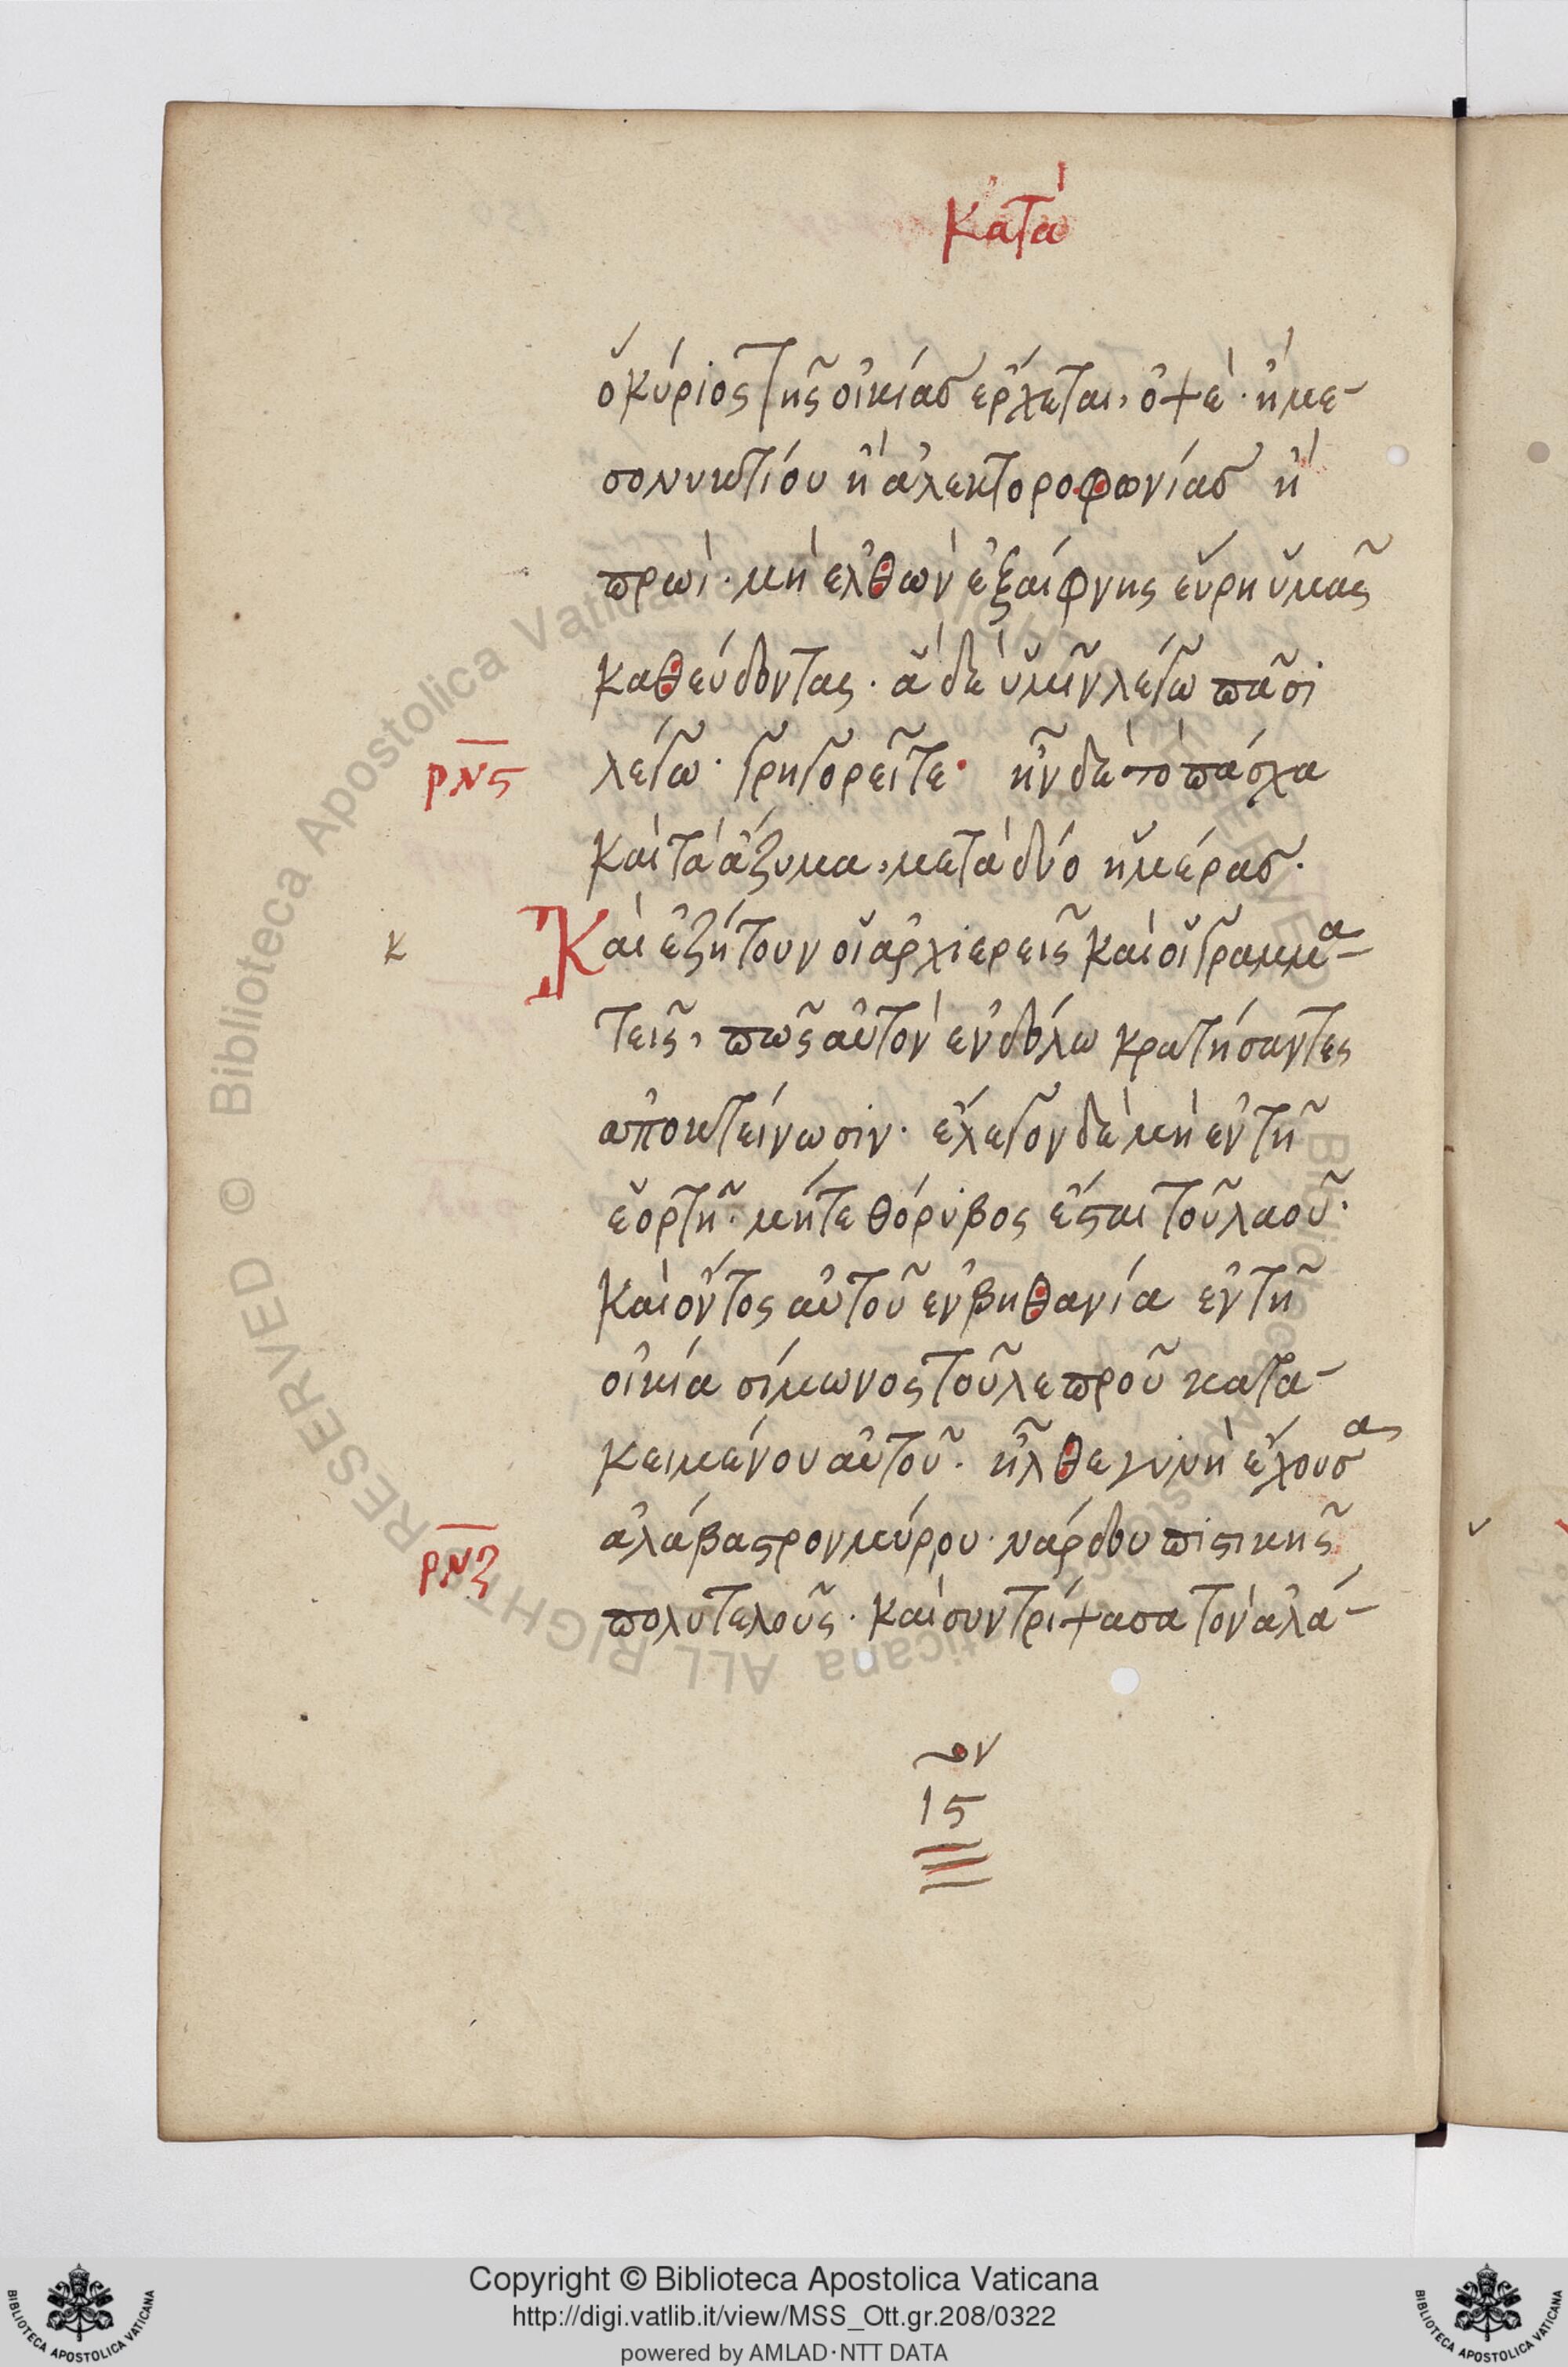 Κατὰ
ὁ κύριος τῆς οἰκίας ἔρχεται, ὀψὲ· ἢ με-
σονυκτίου ἢ ἀλεκτοροφωνίας ἢ
πρωῒ· μὴ ἐλθὼν ἐξαίφνης εὕρη ὑμᾶς
καθεύδοντας· ἃ δὲ ὑμῖν λέγω πᾶσι
ρνς λέγω· γρηγορεῖτε· ἦν δὲ τὸ πάσχα
καὶ τὰ ἄζυμα, μετὰ δύο ἡμέρας·
κ Καὶ ἐζήτουν οἱ ἀρχιερεῖς καὶ οἱ γραμμα-
τεῖς, πῶς αὐτὸν ἐν δόλω κρατήσαντες
ἀποκτείνωσιν· ἔλεγον δὲ μὴ ἐν τῆ
ἑορτῆ· μήτε θόρυβος ἔσται τοῦ λαοῦ·
Καὶ ὄντος αὐτοῦ ἐν βηθανία ἐν τῆ
οἰκία σίμωνος τοῦ λεπροῦ κατα-
κειμένου αὐτοῦ· ἦλθε γυνὴ ἔχουσα
ἀλάβαστρον μύρου· νάρδου πιστικῆς
ρνζ πολυτελοῦς· καὶ συντρίψασα τὸν ἀλά-
15
Biblioteca Apostolica Vaticana ALL RIGHTS RESERVED ©
Copyright © Biblioteca Apostolica Vaticana
http://digi.vatlib.it/view/MSS_Ott.gr.208/0322
powered by AMLAD·NTT DATA
BIBLIOTECA APOSTOLICA VATICANA
BIBLIOTECA APOSTOLICA VATICANA